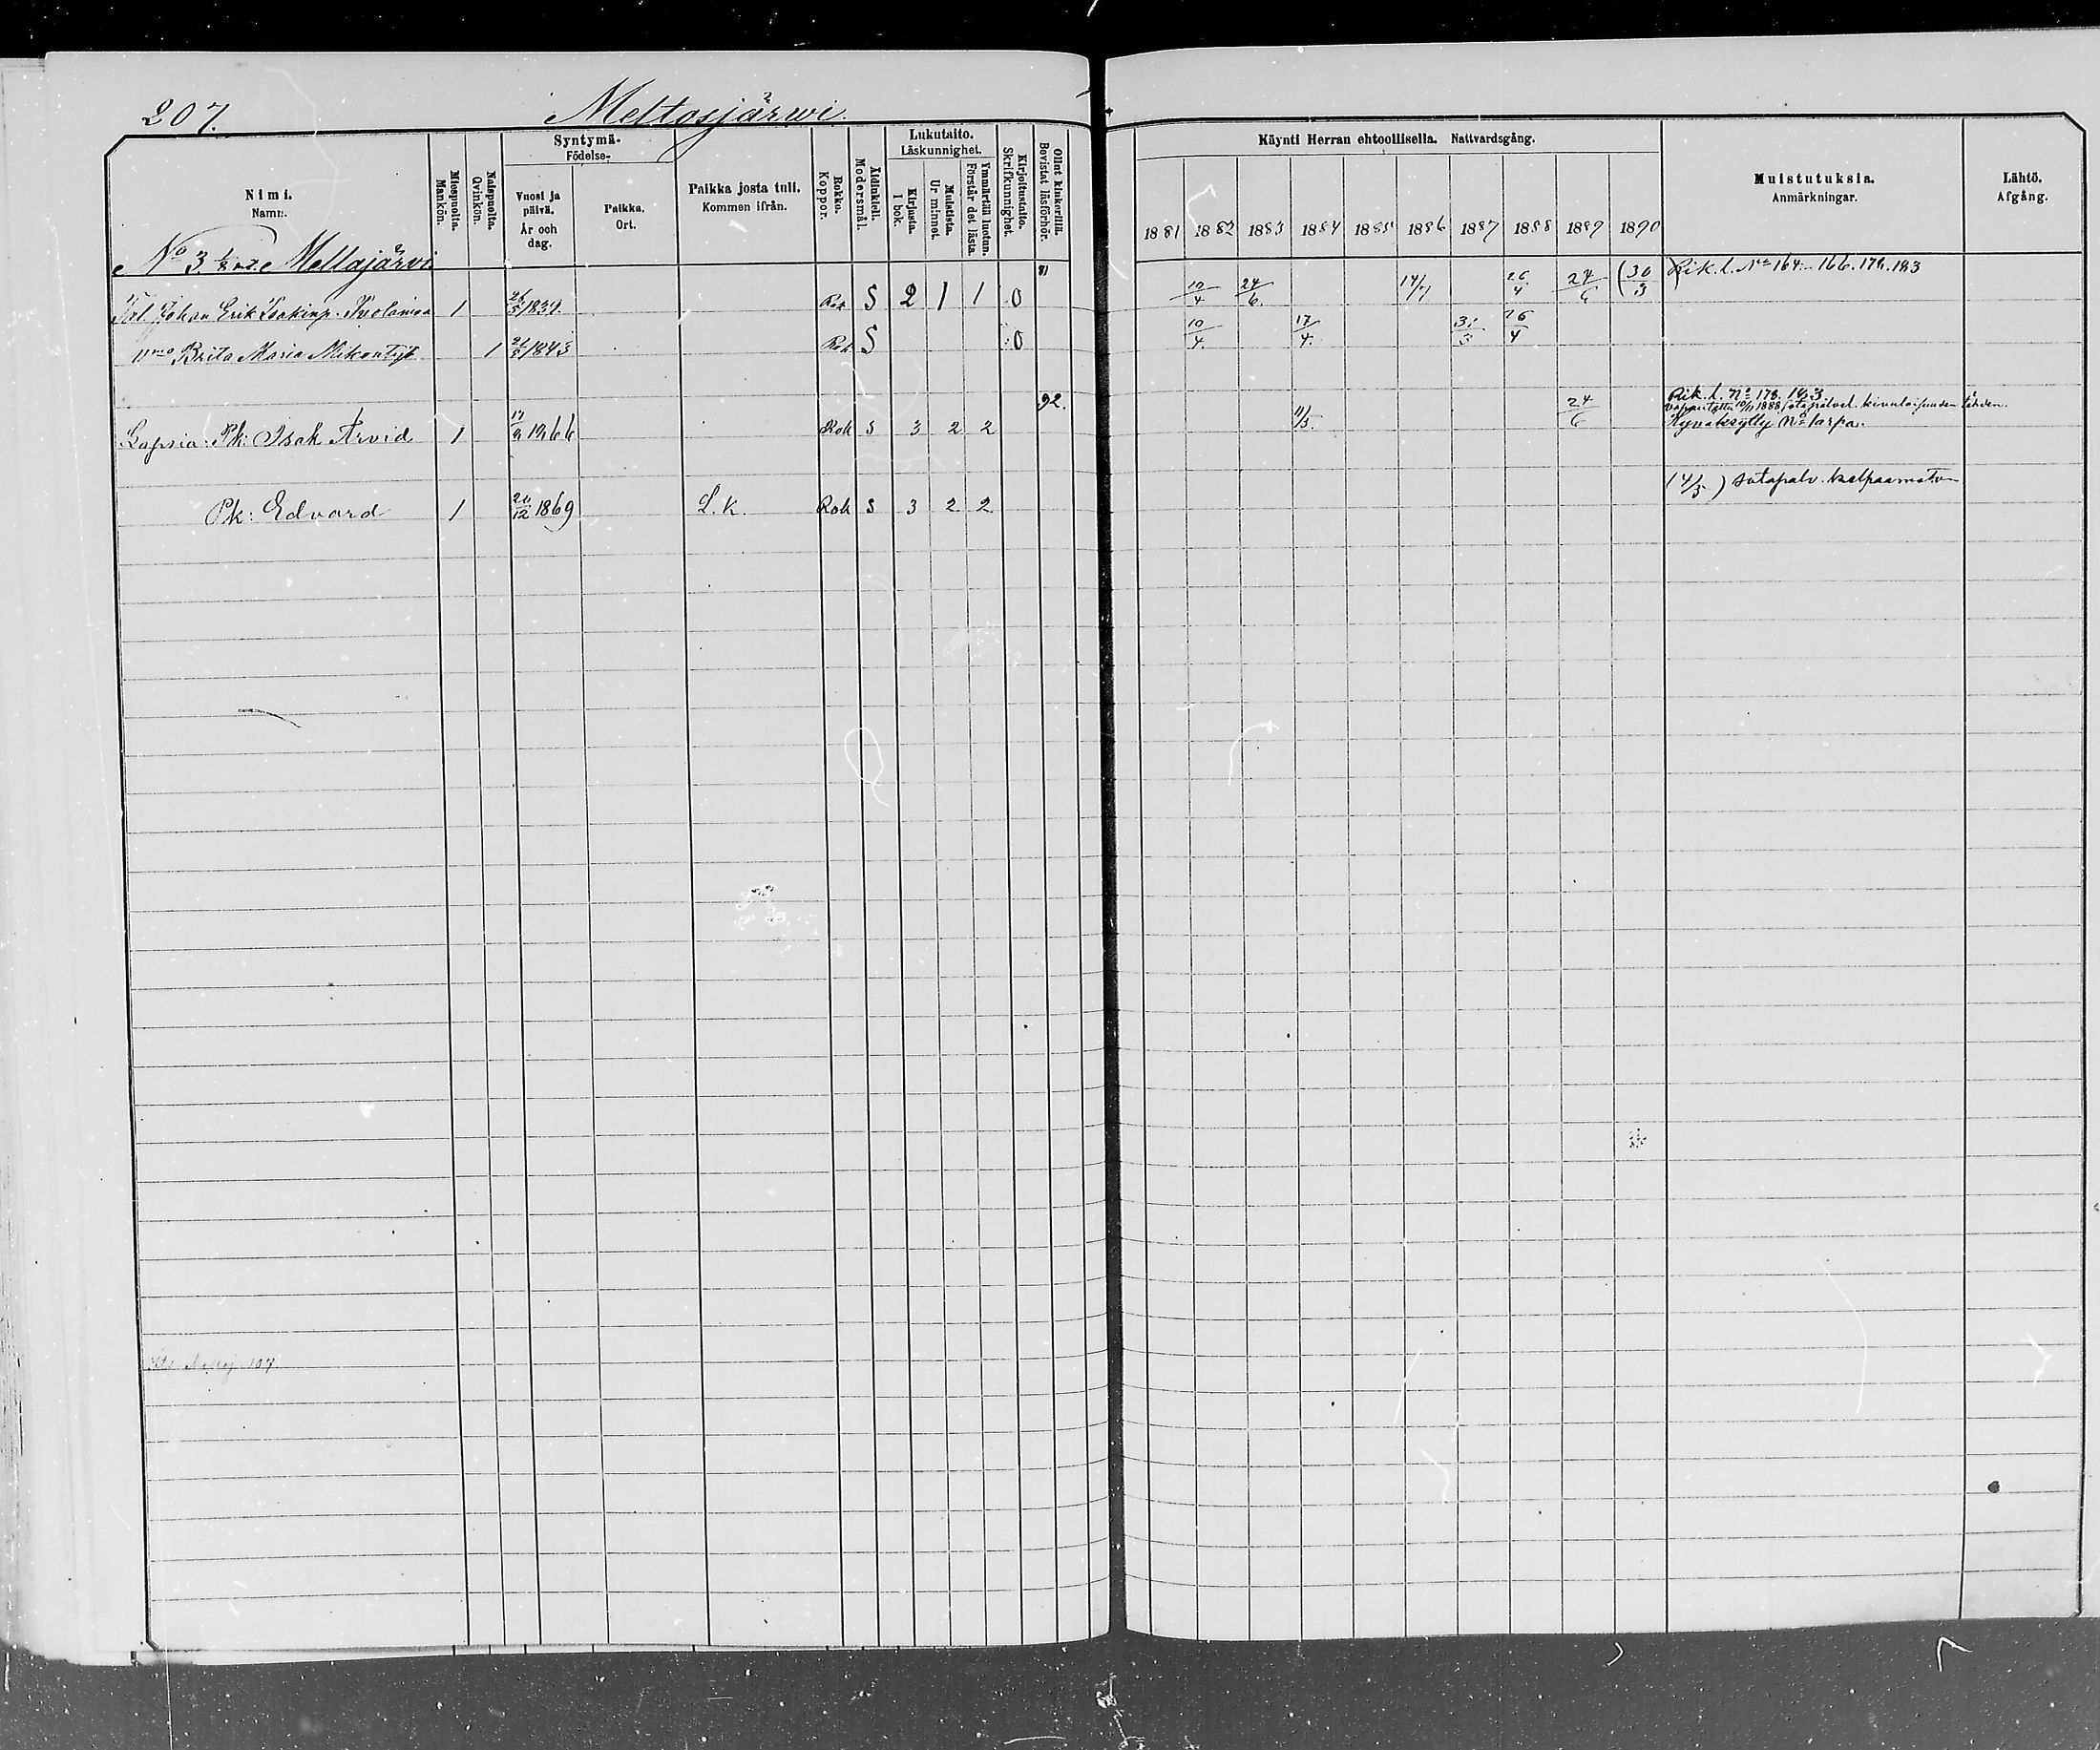 207. Meltosjärwi.
Nimi.
Namn.
Miespuolta.
Mankön.
Naispuolta.
Qvinkön.
Syntymä-
Födelse-
Vuosi ja päivä.
År och dag.
Paikka.
Ort.
Paikka josta tuli.
Kommen ifrån.
Rokko.
Koppor.
Äidinkieli.
Modersmål.
Lukutaito.
Läskunnighet.
Kirjasta.
I bok.
Muistista.
Ur minnet.
Ymmärtää luetun.
Förstår det lästa.
Kirjoitustaito.
Skrifkunnighet.
Ollut kinkerillä.
Bevistat läsförhör.
Käynti Herran ehtoollisella. Nattvardsgång.
1881 1882 1883 1884 1885 1886 1887 1888 1889 1890
Muistutuksia.
Anmärkningar.
Lähtö.
Afgång.
No 3 Mellajärvi
Johan Erik Isakinp. 1 26/3 1839 Rok S 2 1 1 0 81 10/4 24/6 14/7 26/4 24/6 (30/3) Rik. l. No 164. 166. 178. 183
Brita Maria 1 1843 Rok S 0 10/4 17/4 31/3 26/4
Lapsia: Pk: Isak Arvid 1 17/9 1866 Rok S 3 2 2 92. 11/5 24/6 Rik. l. No 178. 183
1888 tähden.
No arpa.
Pk: Edvard 1 20/12 1869 L. k. Rok S 3 2 2 sotapalv. kelpaamaton